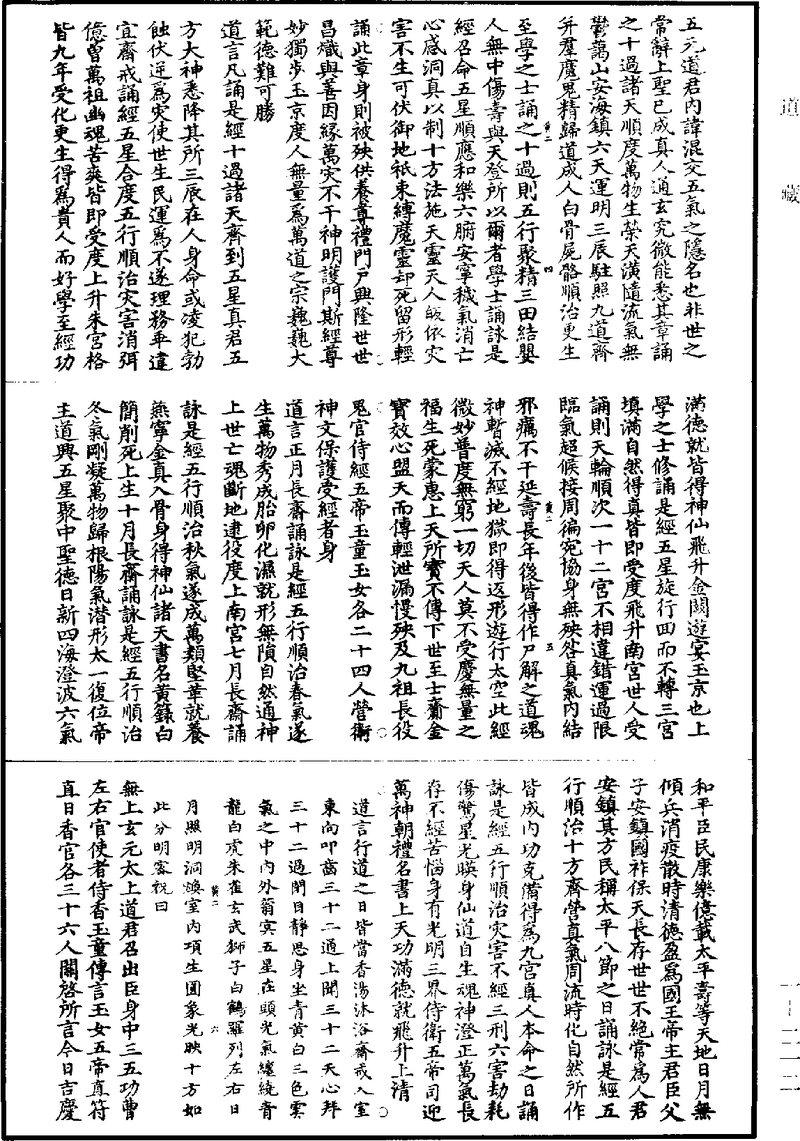 道藏
五元道君內諱混交五氣之隱名也非世之
常辭上聖已成真人通玄究微能悉其章誦
之十過諸天順度萬物生榮天漢隨流氣無
鬱藹山安海鎮六天運明三辰駐照九道齊
并羣魔鬼精歸道成人白骨屍骼順治更生
黃二 四
至學之士誦之十過則五行聚精三田結嬰
人無中傷壽與天登所以爾者學士誦詠是
經召命五星順應和樂六腑安寧穢氣消亡
心感洞真以制十方法施天靈天人皈依灾
害不生可伏御地祇束縛魔靈却死留形輕
誦此章身則被殃供養尊禮門戶興隆世世
昌熾與善因緣萬灾不干神明護門斯經尊
妙獨步玉京度人無量為萬道之宗巍巍大
範德難可勝
道言凡誦是經十過諸天齊到五星真君五
方大神悉降其所三辰在人身命或凌犯勃
蝕伏逆為灾使世生民運為不遂理務乖違
宜齋戒誦經五星合度五行順治灾害消弭
億曾萬祖幽魂苦爽皆即受度上升朱宮格
皆九年受化更生得為貴人而好學至經功
滿德就皆得神仙飛升金闕遊宴玉京也上
學之士修誦是經五星旋行回而不轉三宮
填滿自然得真皆即受度飛升南宮世人受
誦則天輪順次一十二宮不相違錯運過限
臨氣超候接周徧宛協身無殃咎真氣內結
黃二 五
邪癘不干延壽長年後皆得作尸解之道魂
神暫滅不經地獄即得返形遊行太空此經
微妙普度無窮一切天人莫不受慶無量之
福生死蒙惠上天所寶不傳下世至士齎金
寶效心盟天而傳輕泄漏慢殃及九祖長役
鬼官侍經五帝玉童玉女各二十四人營衛
神文保護受經者身
道言正月長齋誦詠是經五行順治春氣遂
生萬物秀成胎卵化濕就形無隕自然通神
上世亡魂斷地逮役度上南宮七月長齋誦
詠是經五行順治秋氣遂成萬類堅華就養
燕寧金真入骨身得神仙諸天書名黃籙白
簡削死上生十月長齋誦詠是經五行順治
冬氣剛凝萬物歸根陽氣潛形太一復位帝
主道興五星聚中聖德日新四海澄波六氣
和平臣民康樂億載太平壽等天地日月無
傾兵消疫散時清德盈為國王帝主君臣父
子安鎮國祚保天長存世世不絕常為人君
安鎮其方民稱太平八節之日誦詠是經五
行順治十方齊營真氣周流時化自然所作
皆成內功克備得為九宮真人本命之日誦
詠是經五行順治灾害不經三刑六害劫耗
傷驚星光暎身仙道自生魂神澄正萬氣長
存不經苦惱身有光明三界侍衛五帝司迎
萬神朝禮名書上天功滿德就飛升上清
道言行道之日皆當香湯沐浴齋戒入室
東向叩齒三十二通上聞三十二天心拜
三十二過閉目靜思身坐青黃白三色雲
氣之中內外蓊冥五星在頭光氣纏繞青
龍白虎朱雀玄武獅子白鶴羅列左右日
黃二 六
月照明洞煥室內項生圓象光映十方如
此分明密祝曰
無上玄元太上道君召出臣身中三五功曹
左右官使者侍香玉童傳言玉女五帝直符
直日香官各三十六人關啓所言今日吉慶